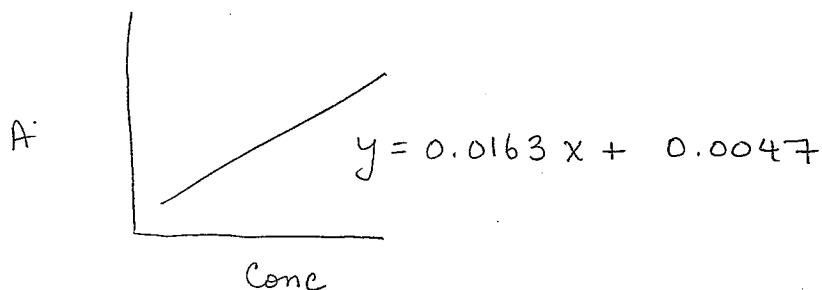 A
y = 0.0163 x + 0.0047
Conc